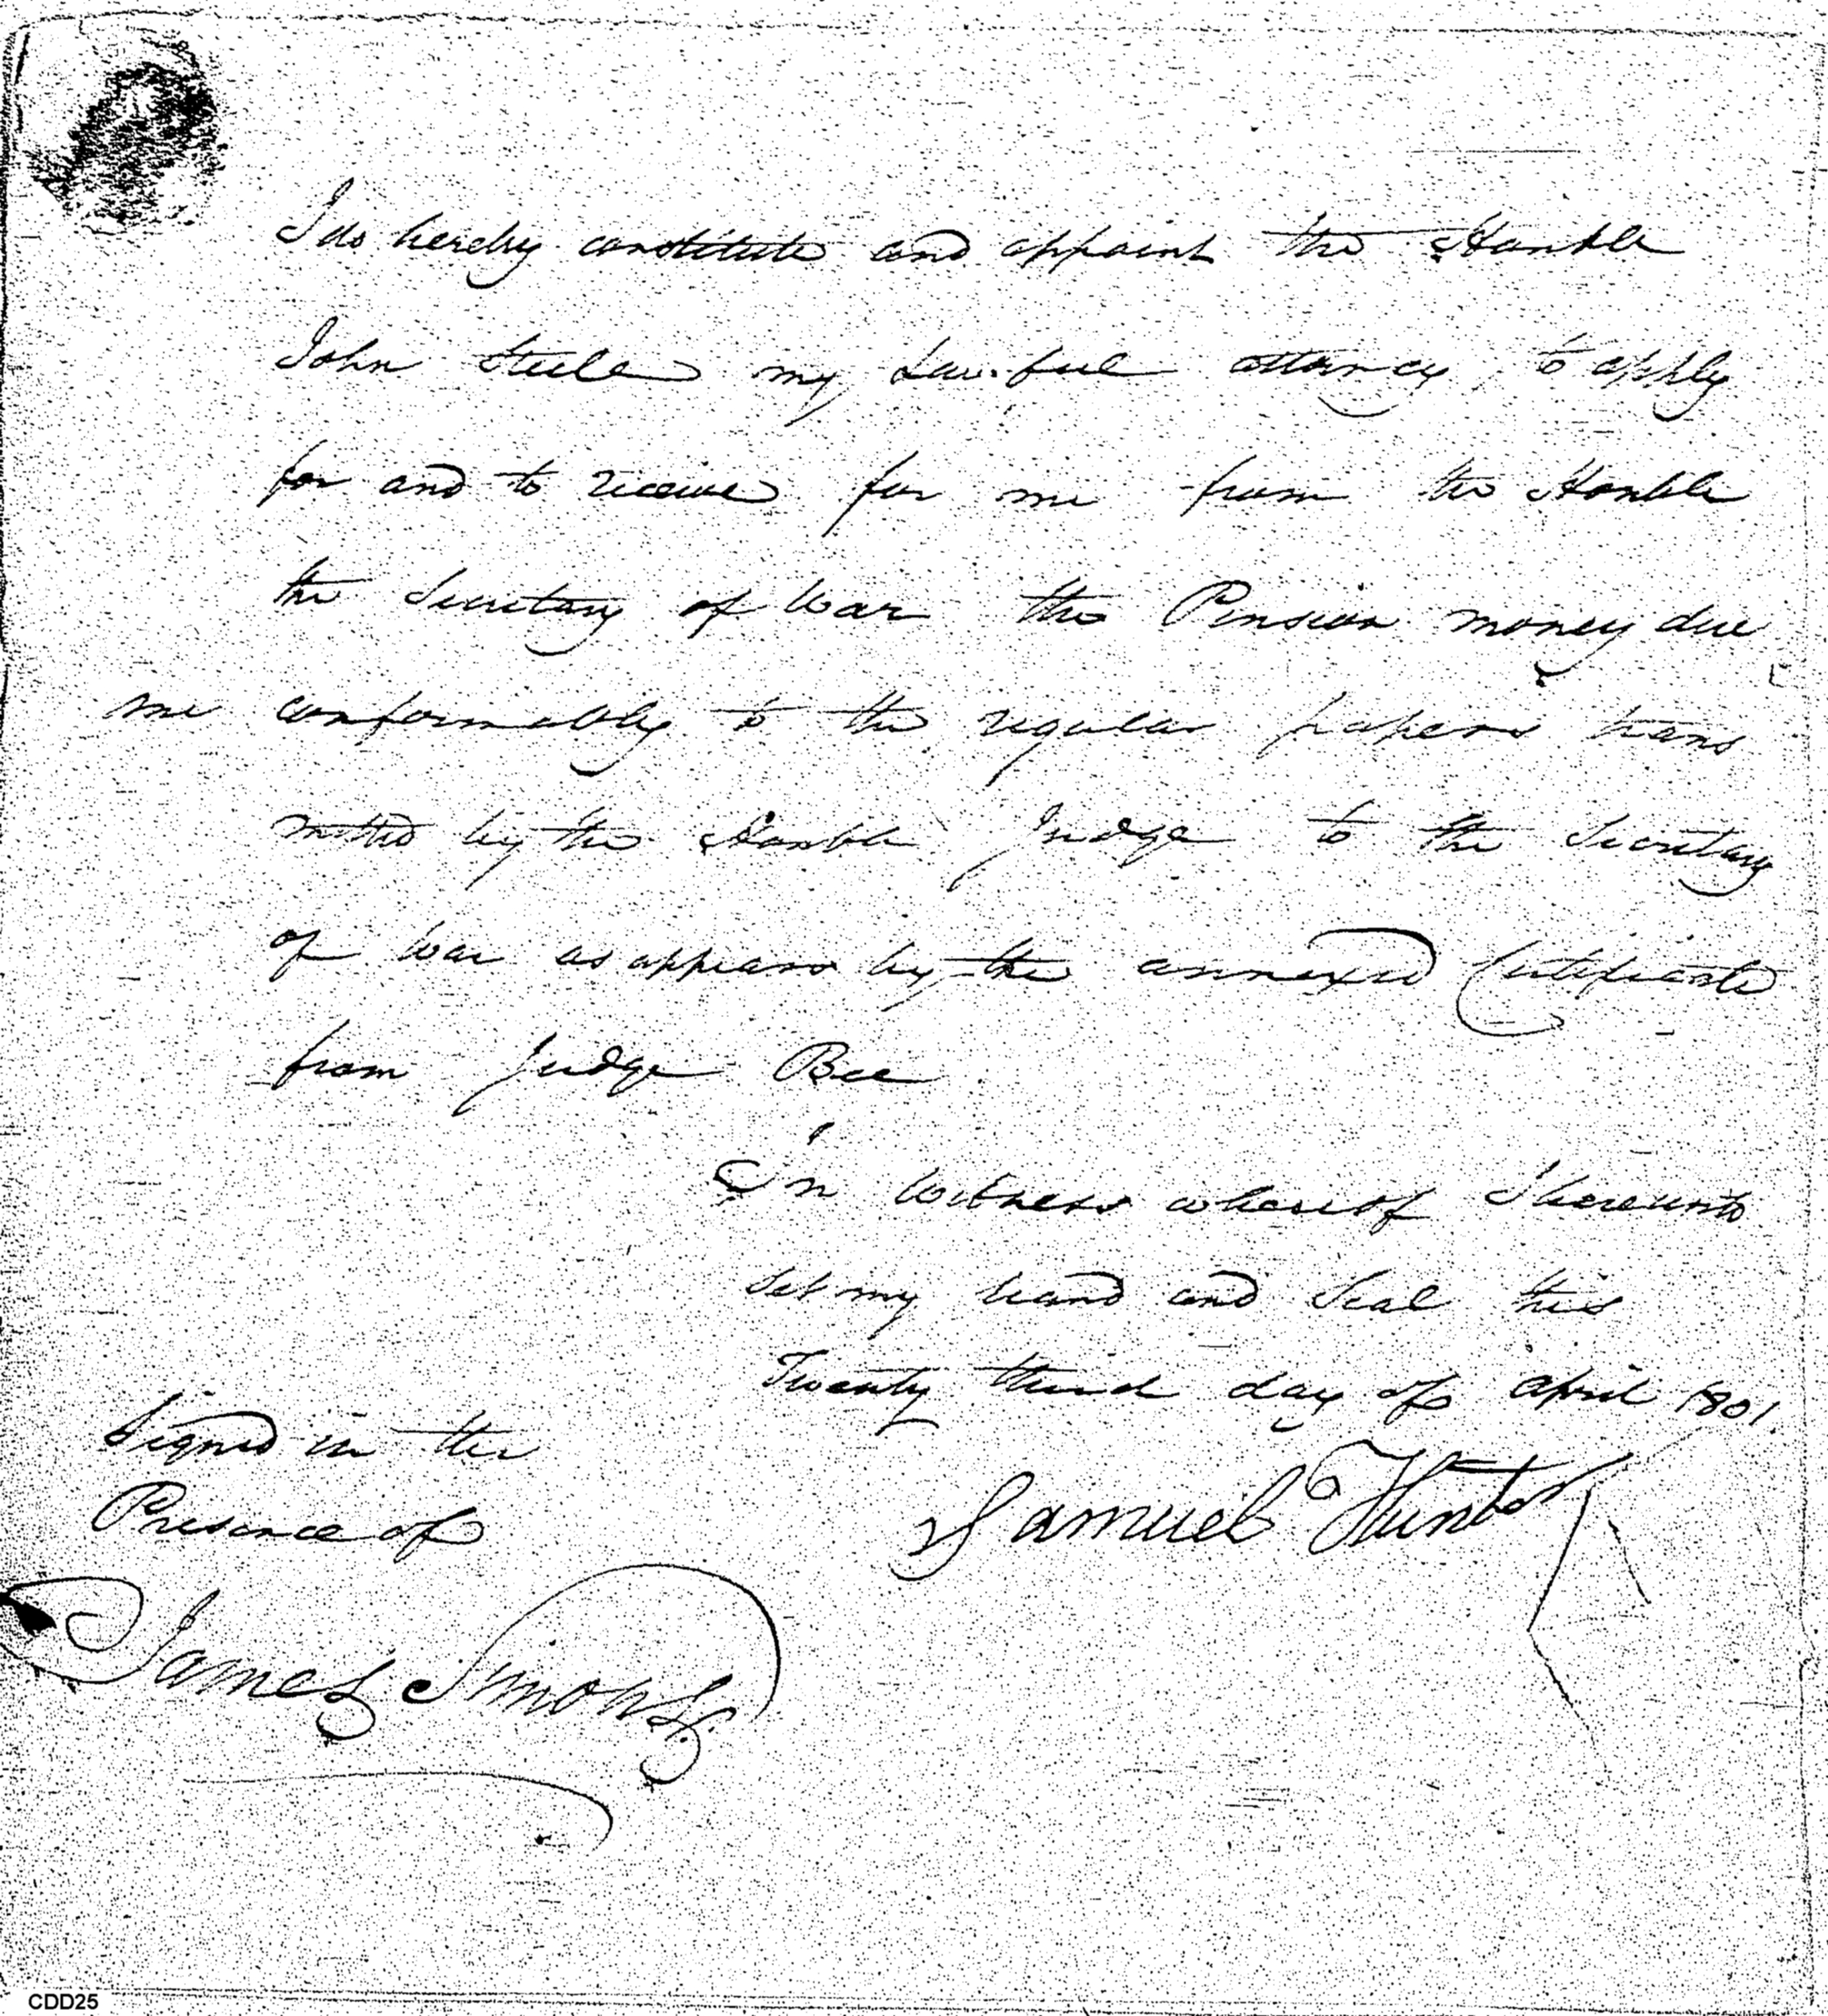 I do hereby constitute and appoint the Honble
John Steele my Lawful attorney, to apply
for and to receive for me from the Honble
the Secretary of War the Pension money due
me conformably to the regular papers trans
mitted by the Honble Judge to the Secretary
of War as appears by the annexed Certificate
from Judge Bee
In Witness whereof I hereunto
set my hand and Seal this
Twenty third day of april 1801
Signed in the
Presence of
Samuel Hunter
James Simons
CDD25